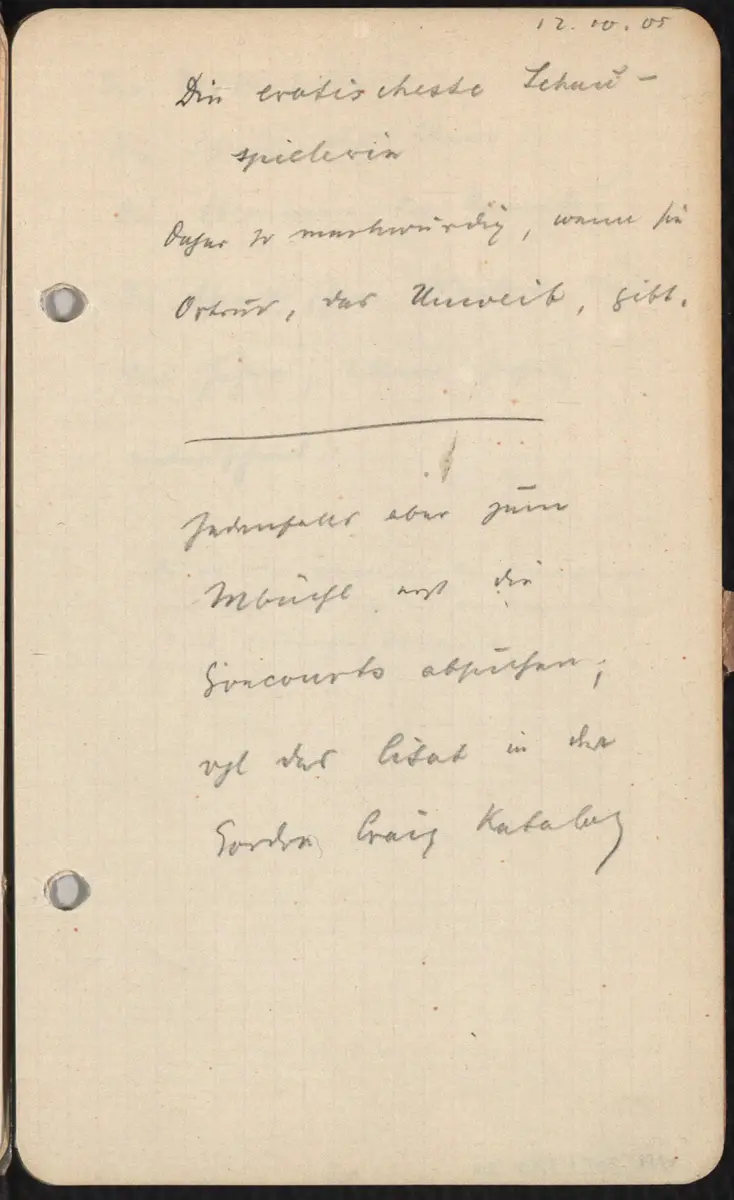 12.10.05
Die erotischeste Schau-
spielerin
Daher so merkwürdig, wenn sie
Ortrud, das Unweib, gibt.
Jedenfalls aber zum
erst die
Goncourts absuchen;
vgl das Citat in der
Gordon Craig Katalog